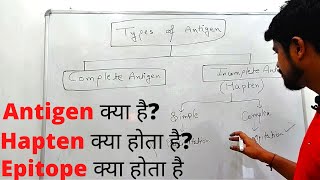 Types of Antigen
Complete Antigen
Incomplete
(Hapten)
Simple
Complex
Antigen क्या है?
Hapten क्या होता है?
Epitope क्या होता है